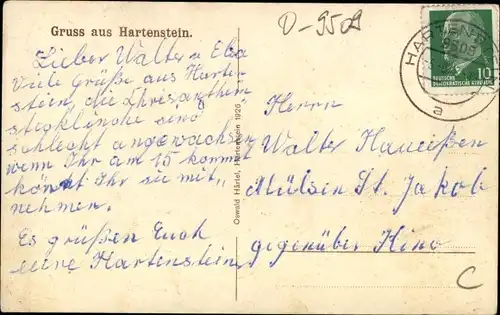 Gruss aus Hartenstein.
D-9509
Lieber Walter u Elsa
Viele Grüße aus Harten
stein, die
stecklinche sind
schlecht angewachsen
wenn Ihr am 15 kommt
könnt Ihr sie mit„
nehmen.
Es grüßen Euch
eure Hartensteiner
Oswald Härtel, Hartenstein 1926
HARTENST
9505
a
10
DEUTSCHE
DEMOKRATISCHE REPUBLIK
Herrn
Walter
Mülsen St. Jakob
gegenüber Kino
C